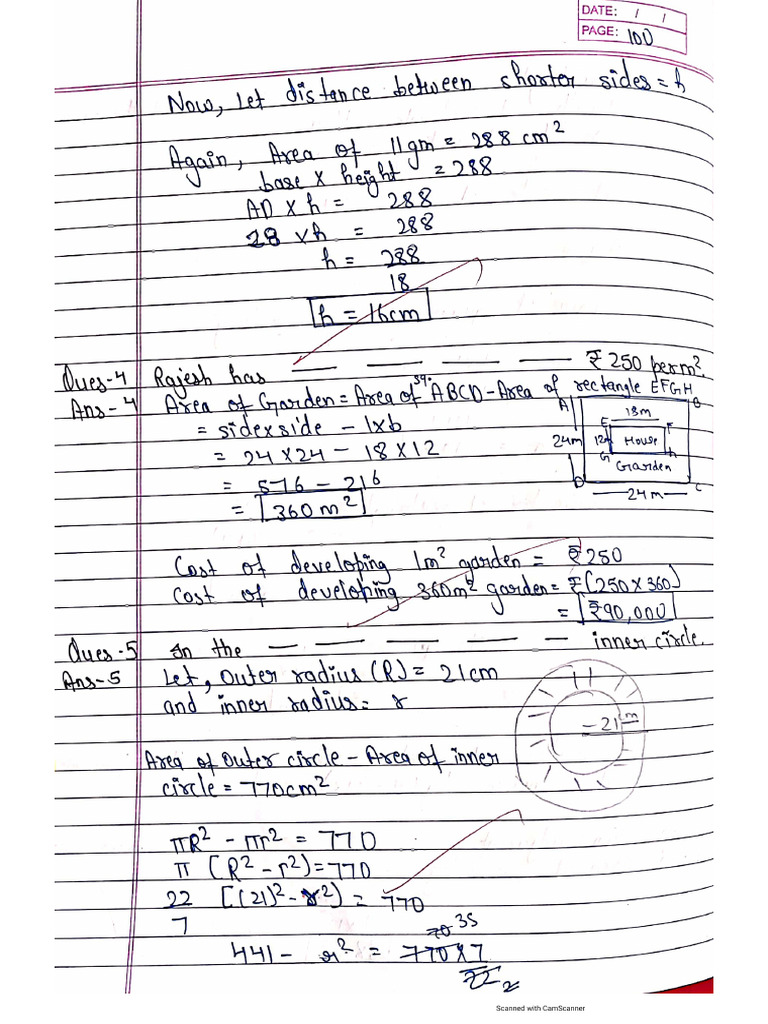 DATE: / /
PAGE: 100
Now, Let distance between shorter sides = h
Again, Area of ||gm = 288 cm²
base × height = 288
AD × h = 288
28 × h = 288
h = 288
18
h = 16cm
Ques-4 Rajesh has — — — — — ₹ 250 per m².
Ans-4 Area of Garden = Area of sq. ABCD - Area of rectangle EFGH
= side×side - l×b
= 24 × 24 - 18 × 12
= 576 - 216
= 360 m²
A B
18m
E F
24m 12m House
G h
Garden
D C
24 m
Cost of developing 1m² garden = ₹ 250
Cost of developing 360m² garden = ₹ (250 × 360)
= ₹90,000
Ques-5 In the — — — — — inner circle.
Ans-5 Let, Outer radius (R) = 21cm
and inner radius = r
21cm
Area of Outer circle - Area of inner
circle = 770cm²
πR² - πr² = 770
π (R² - r²) = 770
22 [(21)² - r²) = 770
7
70 35
441 - r² = 770×7
22 2
Scanned with CamScanner